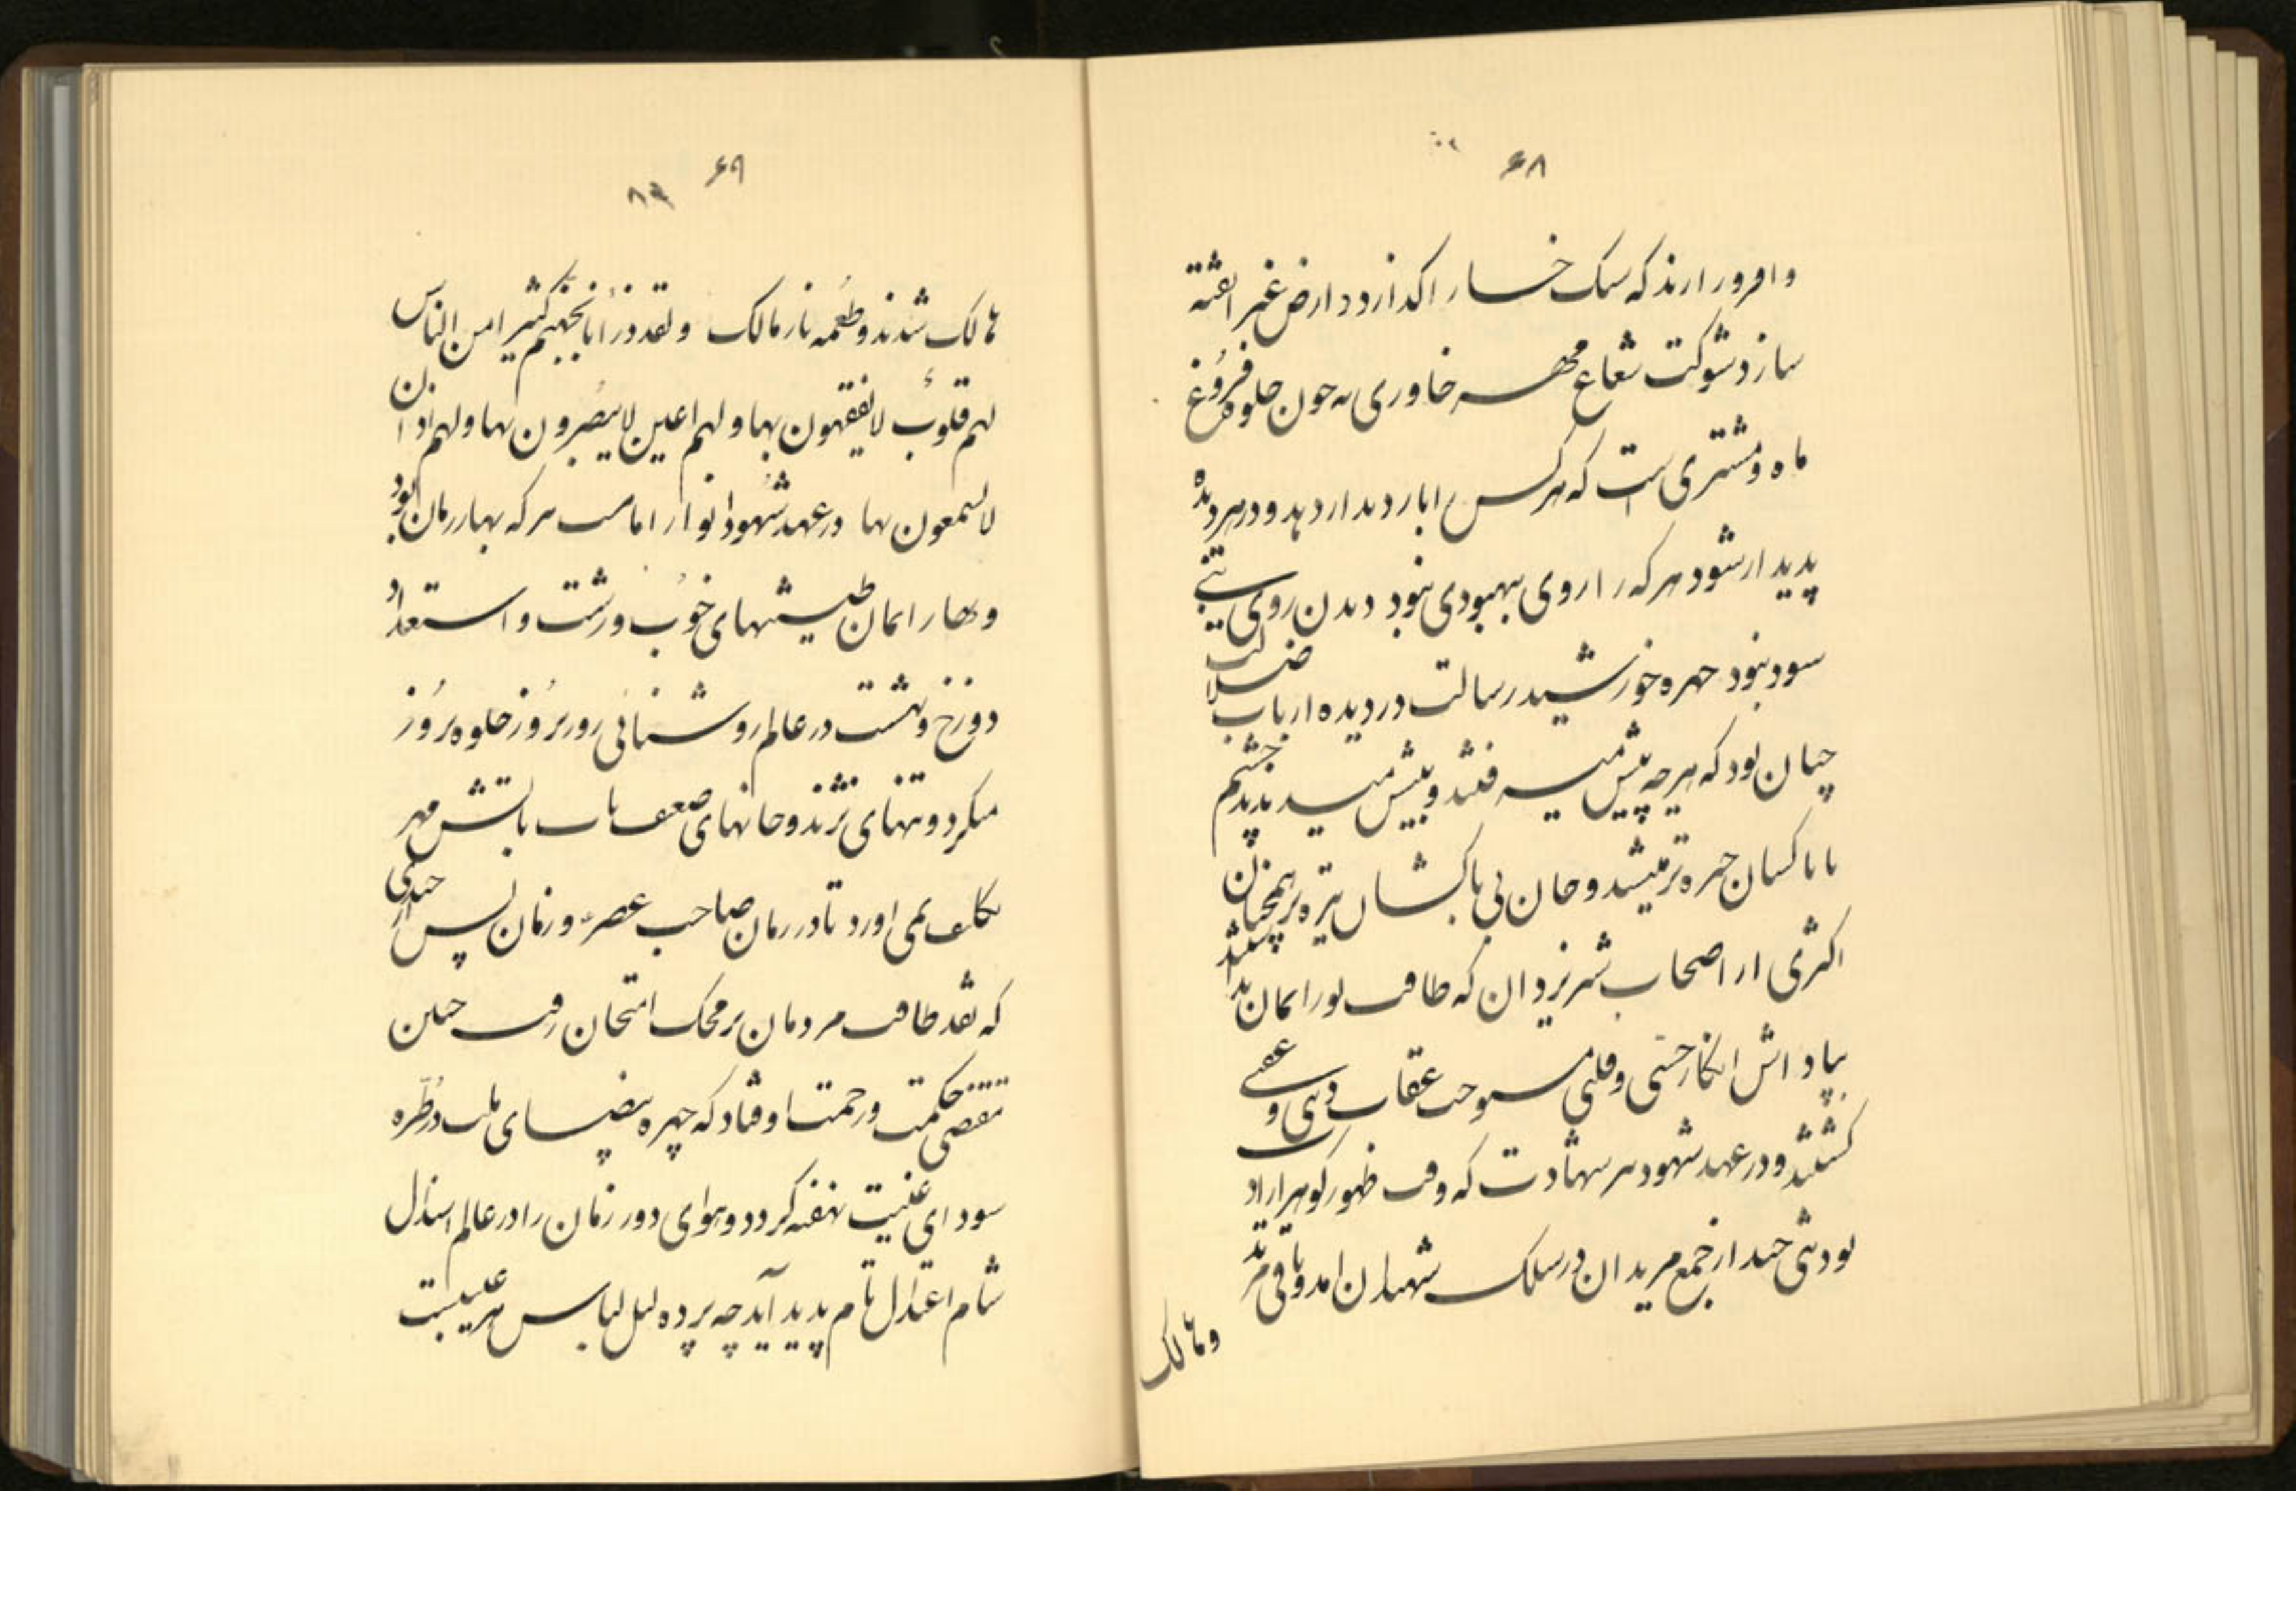 ۶۸
و افروز ارند که سنگ خسار اگدازد د ارض غیر الفته
سازد شوکت شعاع مهر خاوری نه چون جلوه فروغ
ماه و مشتری است که هر کس را بار دیدار دهد و در هر دیده
پدیدار شود هر که را روی بهبودی نبود دیدن روی نبی
سود نبود چهره خورشید رسالت در دیده ارباب ضلالت
چنان بود که هر چه پیش میشد پدید چشم
ناپاکسان خیره تر میشد و جان بی باکشان تیره تر همچنان
اکثری از اصحاب شیر یزدان که طاقت نور ایمان
بپاداش انکار حسی و قلبی مستوجب عقاب دنیی و عقبی
گشتند و در عهد شهود سر شهادت که وقت ظهور گوهر اراد
بود تنی چند از جمع مریدان در سلک شهیدان امد و باقی مرتد
و هالک
۶۹
۸۹
هالک شدند و طعمه نار مالک ولقد ذرأنا لجهنم کثیرا من الناس
لهم قلوب لا یفقهون بها و لهم اعین لا یبصرون بها و لهم اذان
لا یسمعون بها در عهد شهود انوار امامت هر که بهار زمان بود
و بهار ایمان طینتهای خوب و زشت و استعداد
دوزخ و بهشت در عالم روشنائی روز بروز جلوه بروز
میکرد و تنهای نژند و جانهای ضعف یاب تابش مهر
تکلیف نمی اورد تا در زمان صاحب عصر و زمان پس از چندی
که نقد طاقت مردمان بر محک امتحان رفت چنین
مقتضی حکمت و رحمت اوفتاد که چهره بیضای ملت در طره
سودای غیبت نهفته گردد و هوای دور زمان را در عالم
شام اعتدال تام پدید آید چه پرده لیل لباس هر عیبست